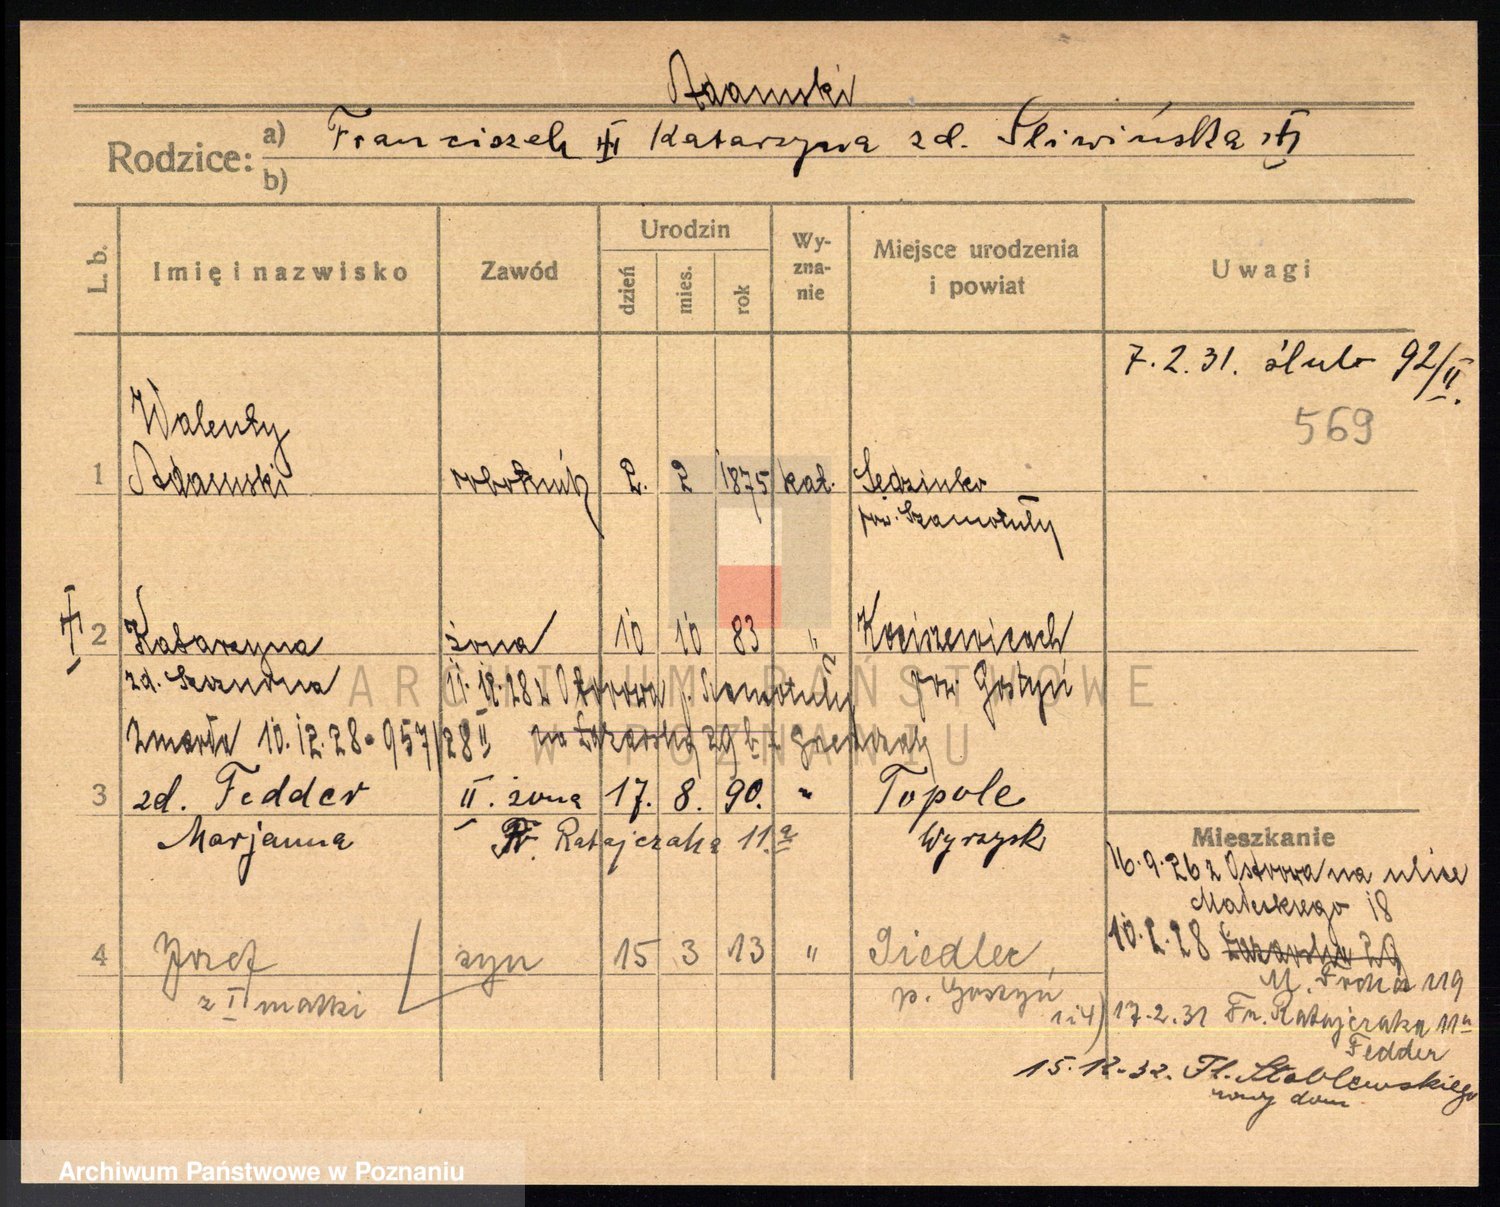 Adamski
Rodzice: a) Franciszek Katarzyna zd. Śliwińska
b)
L. b. Imię i nazwisko Zawód Urodzin dzień mies. rok Wy-zna-nie Miejsce urodzenia i powiat Uwagi
7.2.31. ślub 92/II.
569
Walenty
1 Adamski robotnik 2. 2 1875 kat. Sędzinko
pow. Szamotuły
2 Katarzyna żona 10 10 83 " Kociszewicach
zd. 11.12.28 z Ostrowa p. Szamotuły pow. Gostyń
zmarła 10.12.28 - 957/28 II na Łazarską 29
3 zd. Fedder II. żona 17. 8. 90. " Topole
Marjanna Fr. Ratajczaka 11.a Wyrzysk
Mieszkanie
16.9.26 z Ostrowa na ulice
Matejkiego 18
10.2.28 Łazarska 29
4 Józef syn 15 3 13 " Siedlec
M. Focha 119
z I matki p. Gostyń
1 i 4) 17.2.31 Fr. Ratajczaka 11a
Fedder
15.12.32. Fl. Stablewskiego
nowy dom
ARCHIWUM PAŃSTWOWE
W POZNANIU
Archiwum Państwowe w Poznaniu